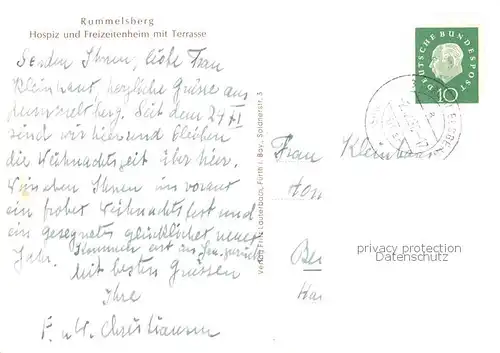 Rummelsberg
Hospiz und Freizeitenheim mit Terrasse
Senden Ihnen, liebe Frau
Kleinhaut, herzliche Grüsse aus
Rummelsberg. Seit dem 24 XI
sind wir hier und bleiben
die Weihnachtszeit über hier.
Wünschen Ihnen im voraus
ein frohes Weihnachtsfest und
ein gesegnetes glückliches neues
Jahr. Kommen erst im Jan. zurück
Mit besten Grüssen
Ihre
F. u. H. Christiansen
Verlag Fritz Lauterbach, Fürth i. Bay., Soldnerstr. 3
DEUTSCHE BUNDESPOST
10
Frau Kleinhaus
privacy protection
Datenschutz